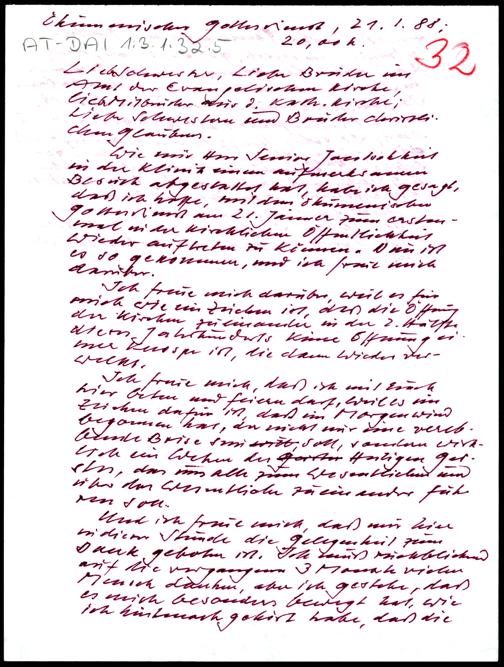 Ökumenischer Gottesdienst, 21.1.88;
20,00 h.
AT-DAI 1.3.1.32.5
32
Liebe Schwester, Liebe Brüder im
Amt der Evangelischen Kirche,
liebe Mitbrüder aus d. Kath. Kirche,
Liebe Schwestern und Brüder christli-
chen Glaubens.
Wie mir Herr Senior
in der Klinik einen aufmerksamen
Besuch abgestattet hat, habe ich gesagt,
daß ich hoffe, mit dem ökumenischen
Gottesdienst am 21. Jänner zum ersten-
mal in der kirchlichen Öffentlichkeit
wieder auftreten zu können. Nun ist
es so gekommen, und ich freue mich
darüber.
Ich freue mich darüber, weil es für
mich wie ein Zeichen ist, daß die Öffnung
der Kirchen zueinander in der 2. Hälfte
dieses Jahrhunderts keine Öffnung ei-
ner Knospe ist, die dann wieder ver-
welkt.
Ich freue mich, daß ich mit Euch
hier beten und feiern darf, weil es ein
Zeichen dafür ist, daß ein Morgenwind
begonnen hat, der nicht nur eine vereb-
bende Brise sein soll, sondern wirk-
lich ein Wehen des Heiligen Gei-
stes, das uns alle zum Wesentlichen und
über das Wesentliche zueinander füh-
ren soll.
Und ich freue mich, daß mir hier
in dieser Stunde die Gelegenheit zum
Dank geboten ist. Ich muß rückblickend
auf die vergangenen 3 Monate vielen
Menschen danken, aber ich gestehe, daß
es mich besonders bewegt hat, wie
ich gehört habe, daß die